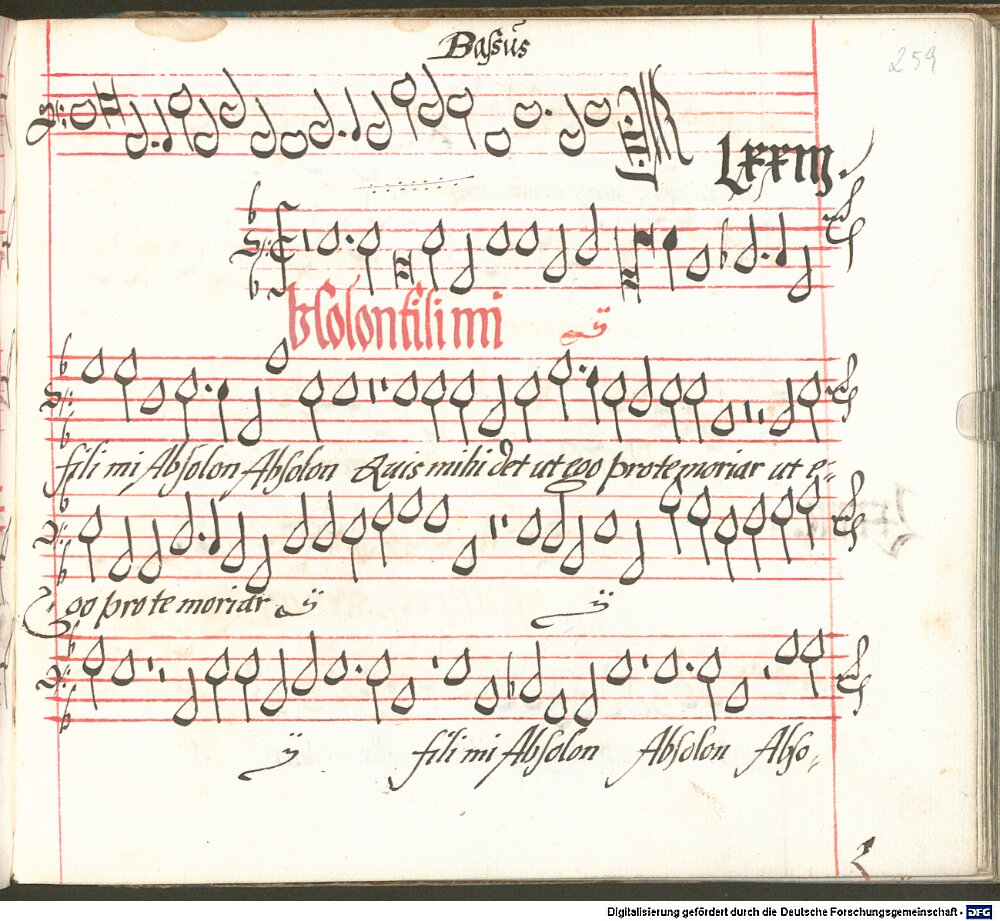 Bassus
259
LXXIII.
Absolon fili mi ij
fili mi Absolon Absolon Quis mihi det ut ego pro te moriar ut e-
go pro te moriar ij ij
ij fili mi Absolon Absolon Abso-
Digitalisierung gefördert durch die Deutsche Forschungsgemeinschaft - DFG